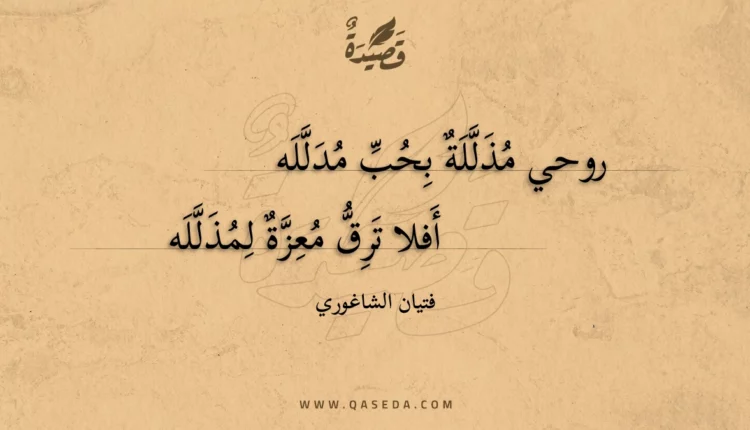 قَصِيْدَةٌ
روحي مُذَلَّلَةٌ بِحُبِّ مُدَلَّلَه
أَفلا تَرِقُّ مُعِزَّةٌ لِمُذَلَّلَه
فتيان الشاغوري
WWW.QASEDA.COM